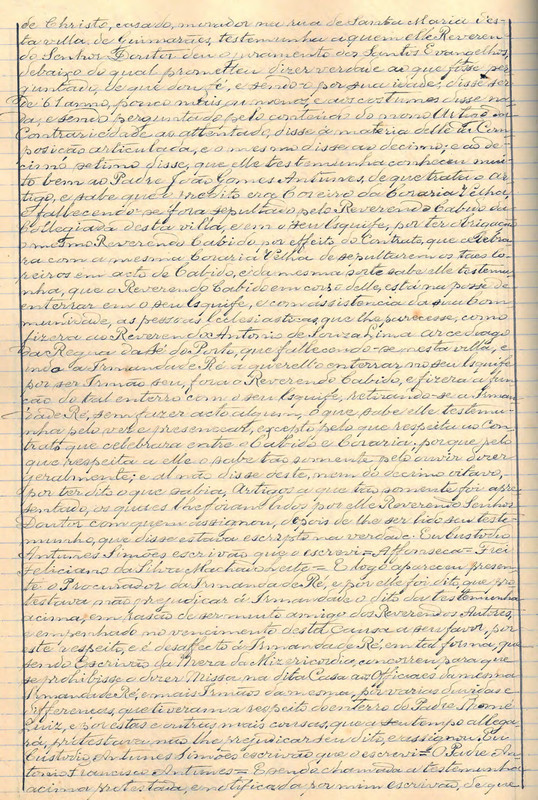 de Christo, casado, morador na rua de Santa Maria des-
ta villa de Guimarães, testemunha a quem elle Reveren-
do Senhor Doutor deu o juramento dos Santos Evangelhos,
debaixo do qual prometteu dizer verdade ao que fosse per-
guntado, de que dou fé, e sendo por sua idade, disse ser
de 61 anno, pouco mais ou menos, e aos costumes disse na-
da, e sendo perguntado pelo contheudo do nono Artigo
Contrariedade ao attentado, disse á materia delle da Com-
posição articulada, e o mesmo disse ao decimo; e ao de-
cimo setimo disse, que elle testemunha conheceu mui-
to bem ao Padre João Gomes Antunes, de que trata o ar-
tigo, e sabe que o predito era Coreiro da Coraria Velha,
e fallecendo se fora sepultado pelo Reverendo Cabido da
Collegiada desta villa, e em o seu Esquife, por ter obrigação
o mesmo Reverendo Cabido, por effeito do Contrato, que celebra-
ra com a mesma Coraria Velha de sepultarem os taes Co-
reiros em acto de Cabido, e da mesma sorte sabe elle testemu-
nha, que o Reverendo Cabido em corpo delle, está na posse de
enterrar em o seu Esquife, e com assistencia da sua Com-
munidade, as pessoas Ecclesiasticas, que lhe parecesse, como
fizera ao Reverendo Antonio de Souza Lima arcediago
da Regua da Sé do Porto, que fallecendo-se nesta villa, e
indo a Irmandade Ré a querello enterrar no seu Esquife,
por ser Irmão seu, fora o Reverendo Cabido, e fizera a fun-
ção do tal enterro com o seu Esquife, retirando-se a Irman-
dade Ré, sem fazer acto algum, o que sabe elle testemu-
nha pelo ver e presencear, excepto pelo que respeita ao Con-
trato que celebrara entre o Cabido e Coraria: porque pelo
que respeita a elle o sabe tão somente pelo ouvir dizer
geralmente; e al não disse deste, nem do decimo oitavo,
por ter dito o que sabia, Artigos a que tão somente foi apre-
sentado, os quaes lhe foram lidos por elle Reverendo Senhor
Doutor com quem assignou, depois de lhe ser lido seu teste-
munho, que disse estava escripto na verdade. Eu Custodio
Antunes Simões escrivão que o escrevi = Affonseca = Frei
Feliciano da Silva = E logo apareceu presen-
te o Procurador da Irmandade Ré, e por elle foi dito, que pro-
testava não prejudicar á Irmandade o dito da testemunha
acima, em rasão de ser muito amigo dos Reverendos Autores,
e empenhado no vencimento desta Causa a seu favor, por
este respeito, e é desaffecto á Irmandade Ré, em tal forma, que
sendo Escrivão da Meza da Mizericordia, concorreu para que
se prohibisse o dizer Missa na dita Casa ao Officiaes da mesma
Irmandade Ré, e mais Irmãos da mesma, por varias duvidas e
differenças, que tiveram a respeito do enterro do Padre Thomé
Luiz, e por estas e outras mais cousas, que a seu tempo allega-
rá, protestava não lhe prejudicar seu dito, e assignou. Eu
Custodio Antunes Simões escrivão que o escrevi = O Padre An-
tonio Francisco Antunes = E sendo chamada a testemunha
acima protestada, e notificada por mim escrivão, de que